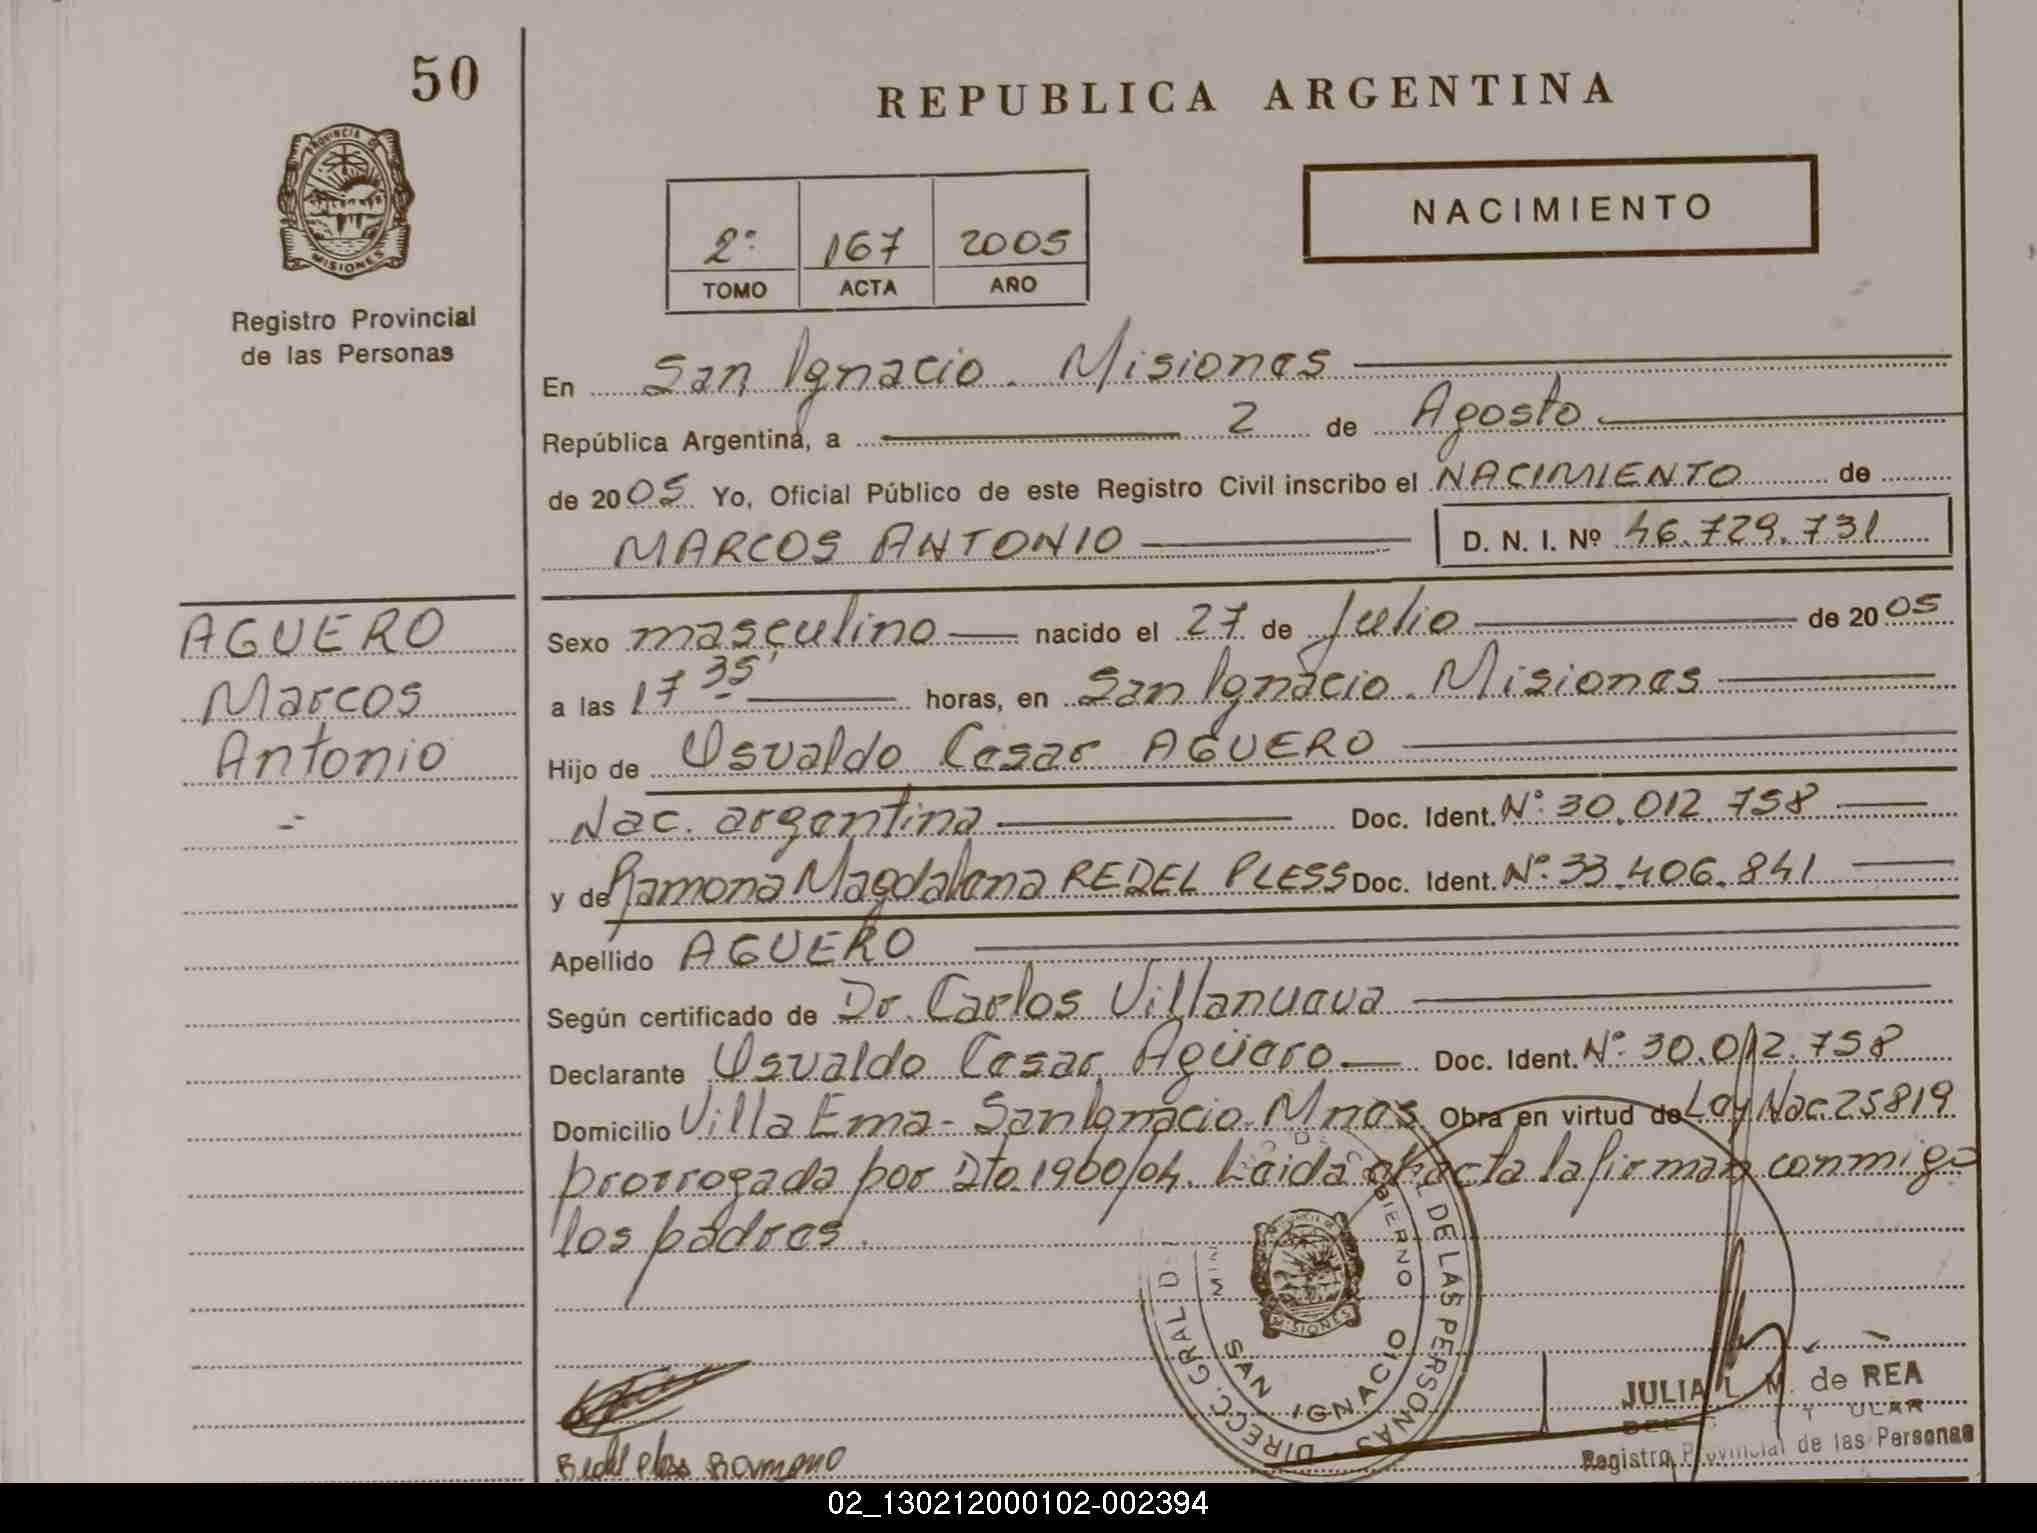 50
REPUBLICA ARGENTINA
PROVINCIA DE
MISIONES
Registro Provincial
de las Personas
NACIMIENTO
2º 167 2005
TOMO ACTA AÑO
En San Ignacio. Misiones
República Argentina, a 2 de Agosto
de 2005 Yo, Oficial Público de este Registro Civil inscribo el NACIMIENTO de
MARCOS ANTONIO D. N. I. Nº 46.729.731
AGUERO
Marcos
Antonio
Sexo masculino nacido el 27 de Julio de 2005
a las 17 35' horas, en San Ignacio. Misiones
Hijo de Osvaldo Cesar AGUERO
Nac. argentina Doc. Ident. Nº 30.012.758
y de Ramona Magdalena REDEL PLESS Doc. Ident. Nº 33.406.841
Apellido AGUERO
Según certificado de Dr. Carlos Villanueva
Declarante Osvaldo Cesar Agüero Doc. Ident. Nº 30.012.758
Domicilio Villa Ema - San Ignacio. Mnes Obra en virtud de Ley Nac. 25819
prorrogada por Dto. 1900/04. Leida el acta la firman conmigo
los padres.
DIRECC. GRAL D DE LAS PERSONAS
MIN BIERNO
MISIONES
SAN IGNACIO
JULIA L. M. de REA
Registro Provincial de las Personas
Redel Ramona
02_130212000102-002394